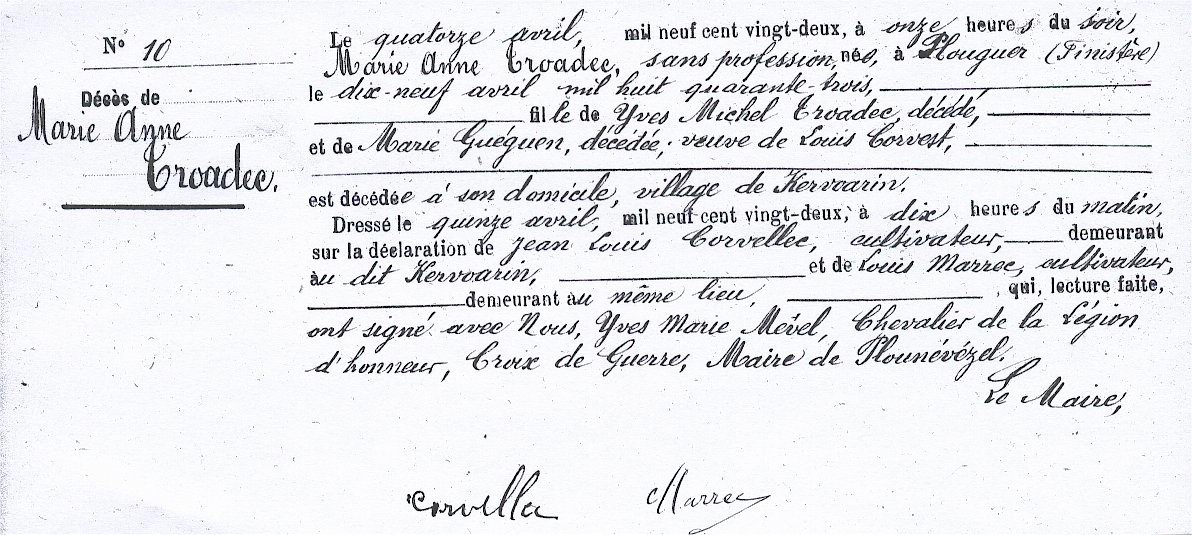 N° 10
Décès de
Marie Anne
Troadec.
Le quatorze avril, mil neuf cent vingt-deux, à onze heures du soir,
Marie Anne Troadec, sans profession, née, à Plouguer (Finistère)
le dix-neuf avril mil huit quarante-trois,
fille de Yves Michel Troadec, décédé,
et de Marie Guéguen, décédée, veuve de Louis Corvest,
est décédée à son domicile, village de Kervoarin.
Dressé le quinze avril, mil neuf cent vingt-deux, à dix heures du matin,
sur la déclaration de Jean Louis Corvellec, cultivateur, demeurant
au dit Kervoarin, et de Louis Marrec, cultivateur,
demeurant au même lieu, qui, lecture faite,
ont signé avec Nous, Yves Marie Mével, Chevalier de la Légion
d'honneur, Croix de Guerre, Maire de Plounévézel.
Le Maire,
Corvellec Marrec